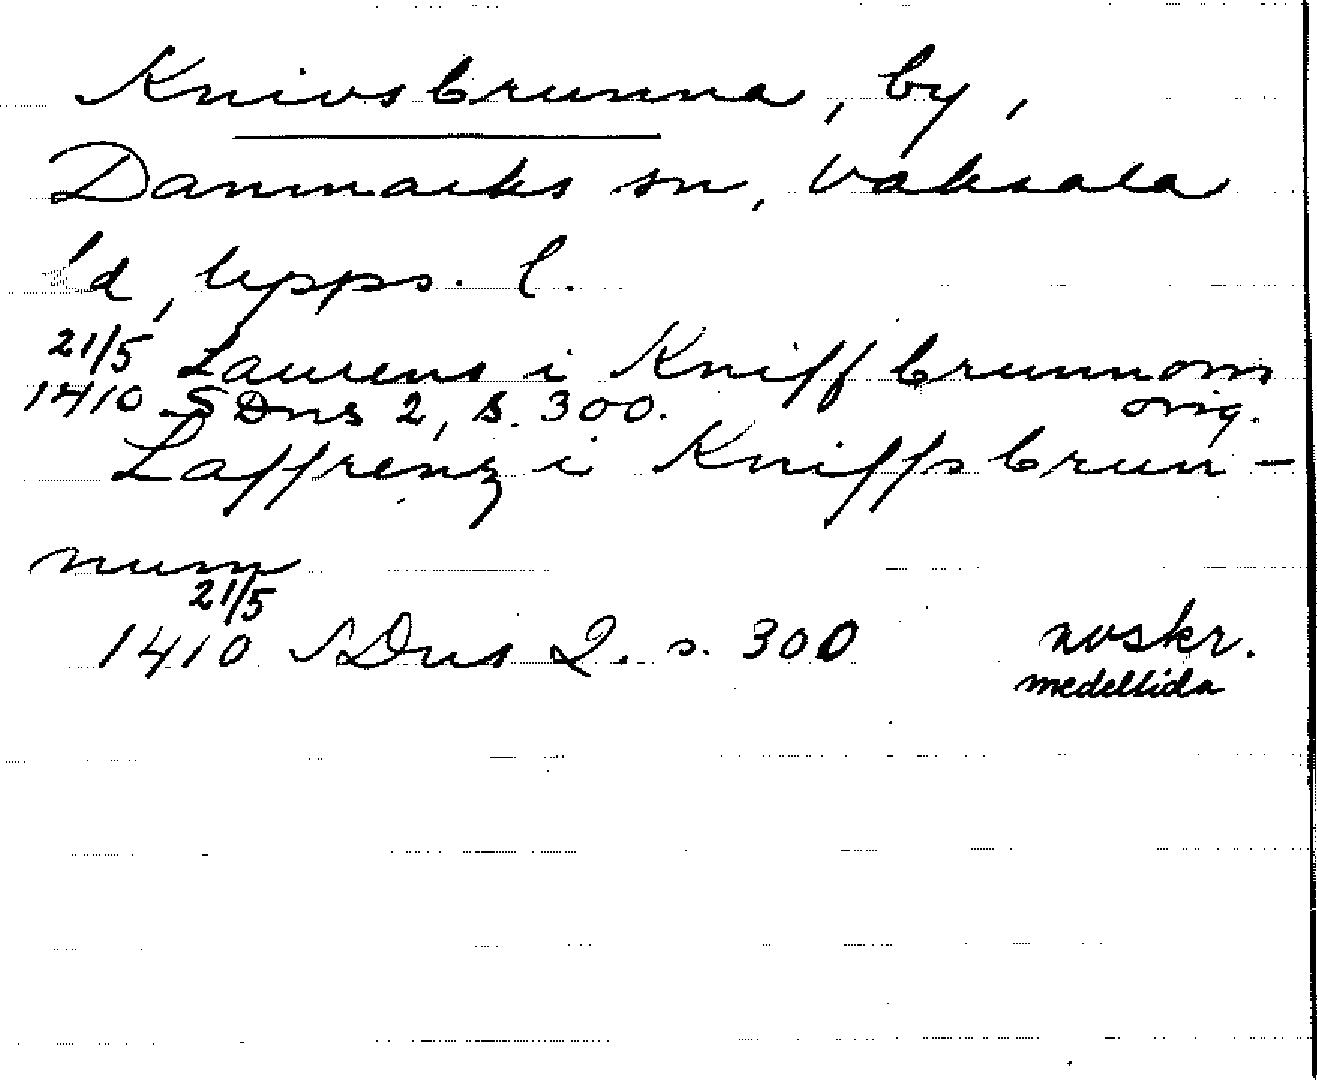 Knivsbrunna, by,
Danmarks sn, Vaksala
hd, Upps. l.
21/5 Laurens i Kniffbrunnom
1410 SDns 2, s. 300. orig.
Laffrenz i Kniffsbrun-
num
21/5
1410 SDns 2. s. 300 avskr.
medeltida